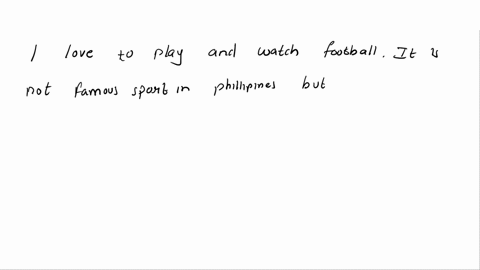 I love to play and watch football. It is
not famous sport in phillipines but